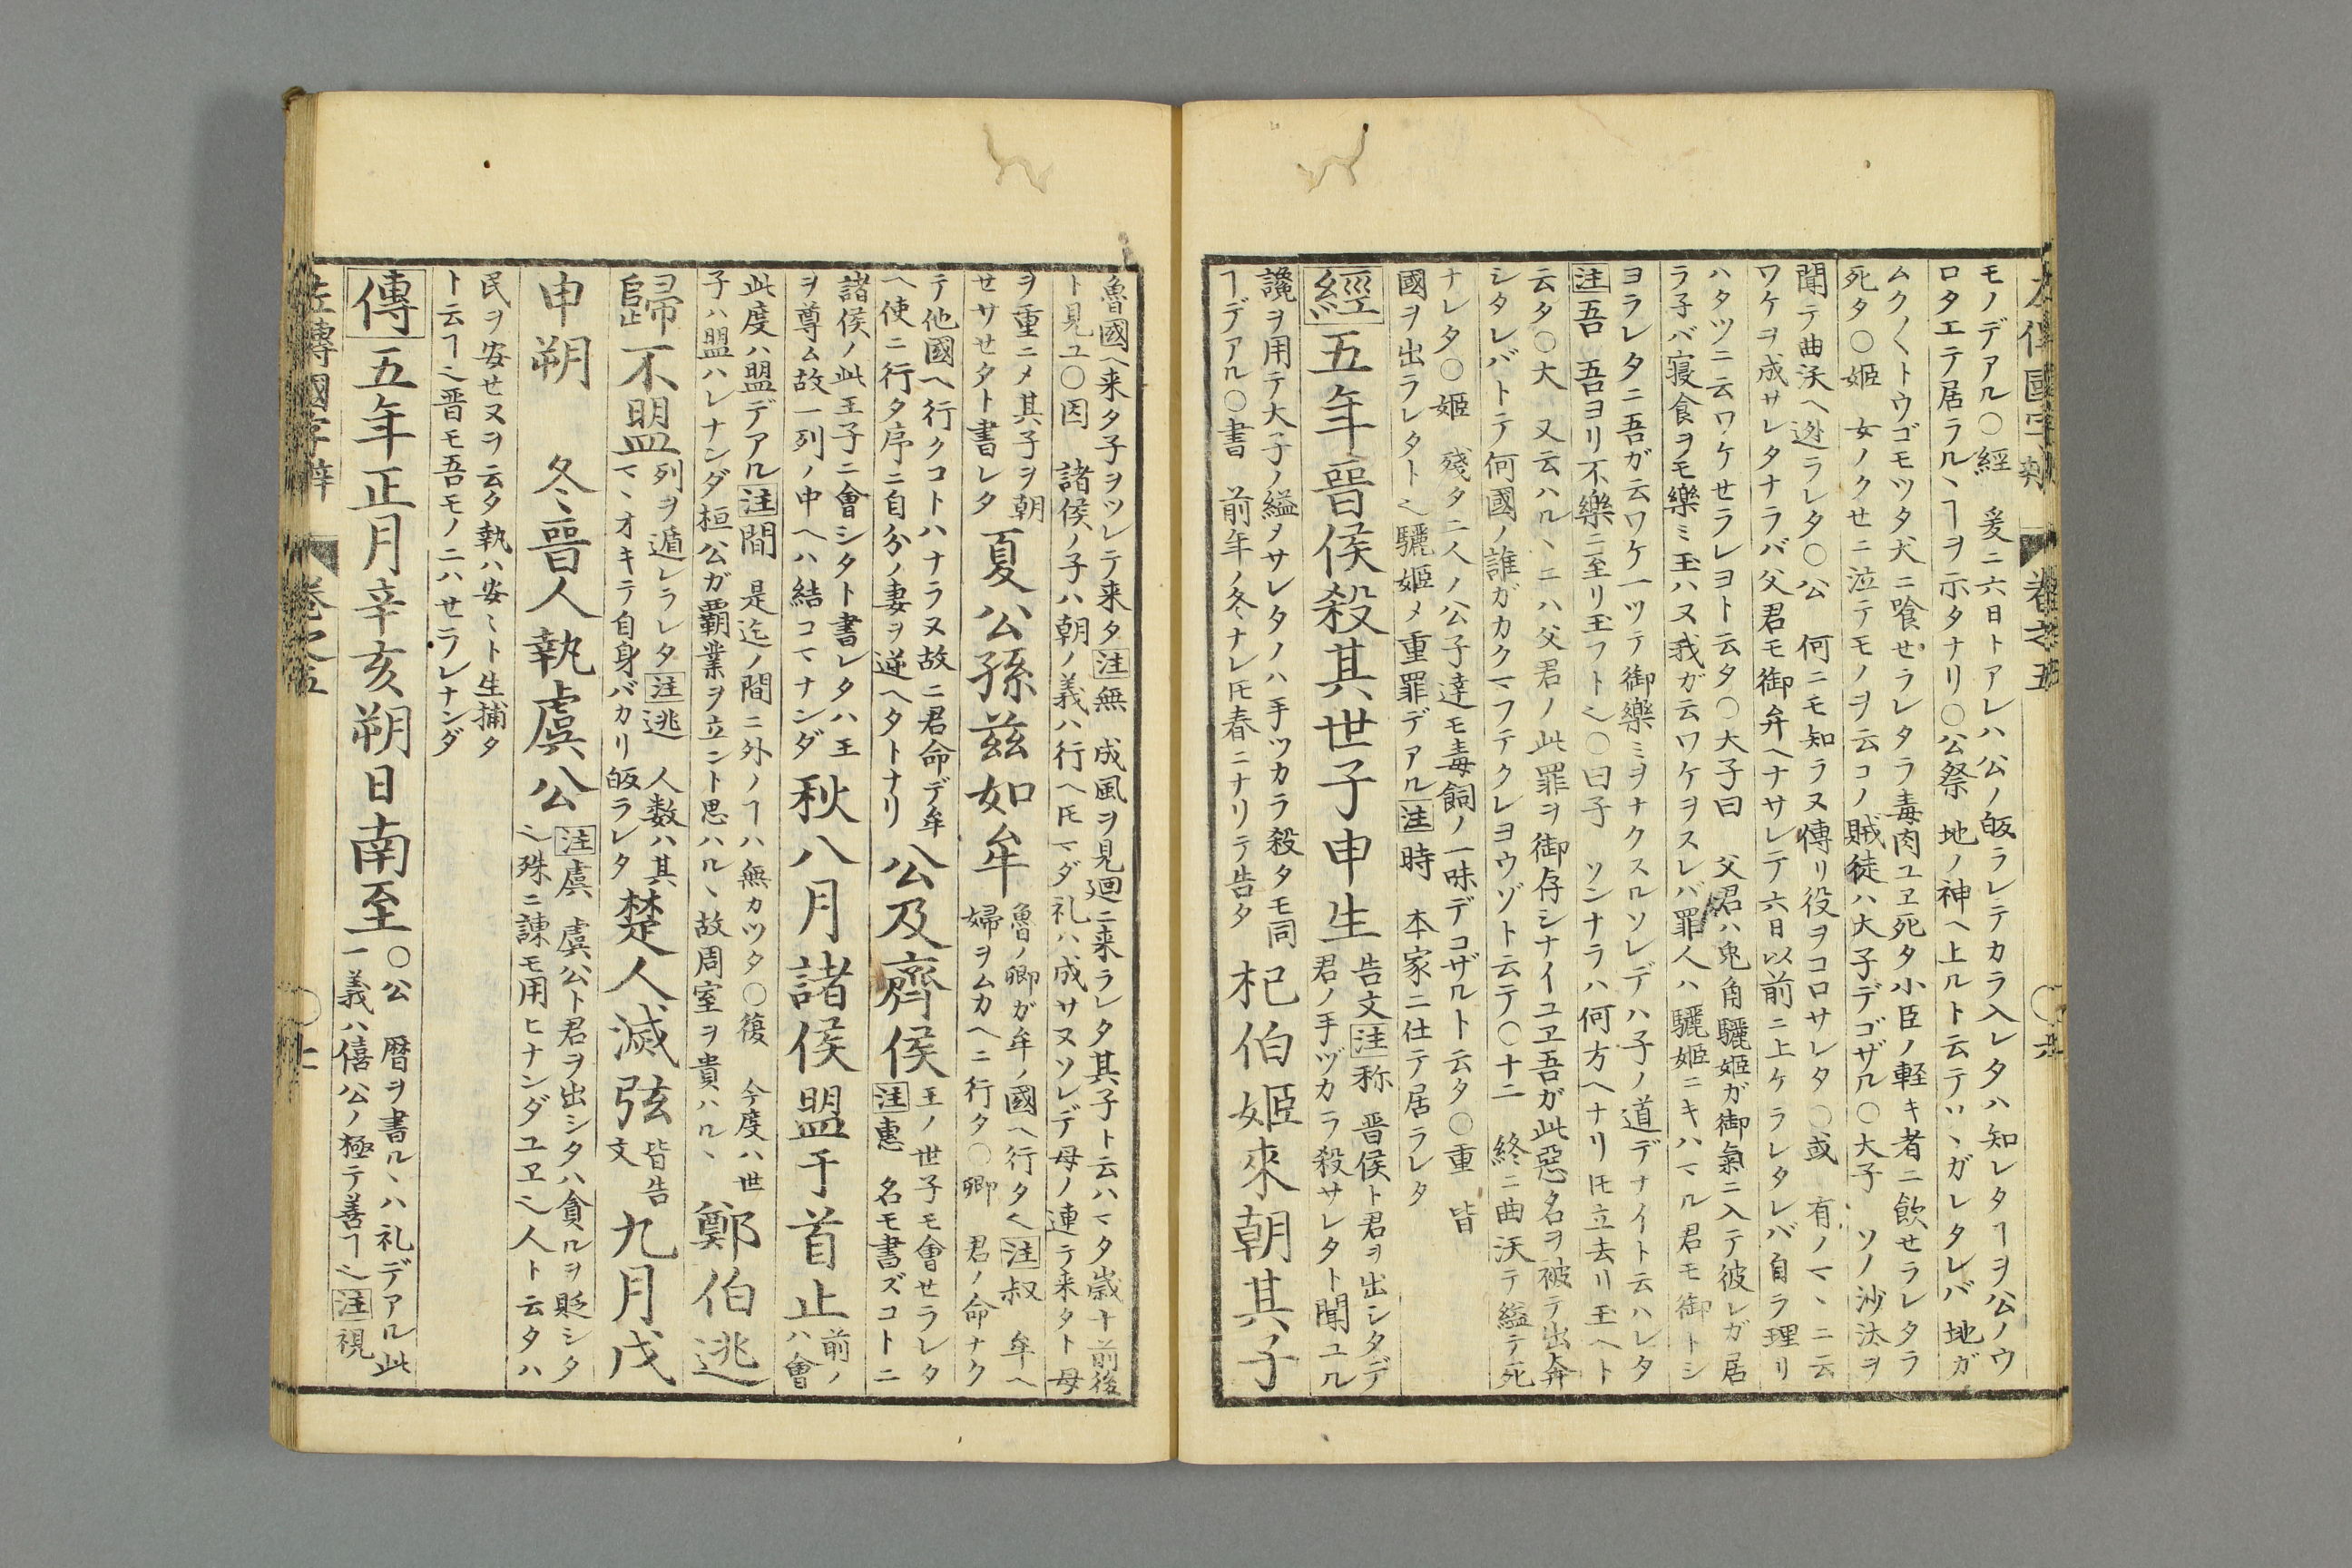 モノデアル〇經　爰ニ六日トアレハ公ノ皈ラレテカラ入レタハ知レタヿヲ公ノウ
ロタエテ居ラルヽヿヲ示タナリ〇公祭　地ノ神ヘ上ルト云テソヽガレタレバ地ガ
ムク〳〵トウゴモツタ犬ニ喰せラレタラ毒肉ユヱ死タ小臣ノ軽キ者ニ飲せラレタラ
死タ〇姬　女ノクせニ泣テモノヲ云コノ賊徒ハ大子デゴザル〇大子　ソノ沙汰ヲ
聞テ曲沃ヘ迯ラレタ〇公　何ニモ知ラヌ傳リ役ヲコロサレタ〇或　有ノマヽニ云
ワケヲ成サレタナラバ父君モ御弁ヘナサレテ六日以前ニ上ケラレタレバ自ラ理リ
ハタツニ云ワケせラレヨト云タ〇大子曰　父君ハ兎角驪姬ガ御氣ニ入テ彼レガ居
ラ子バ寝食ヲモ樂ミ玉ハヌ我ガ云ワケヲスレバ罪人ハ驪姬ニキハマル君モ御トシ
ヨラレタニ吾ガ云ワケ一ツテ御樂ミヲナクスルソレデハ子ノ道デナイト云ハレタ
注吾　吾ヨリ不樂ニ至リ玉フト〇曰子　ソンナラハ何方ヘナリ𪜈立去リ玉ヘト
云タ〇大　又云ハルヽニハ父君ノ此罪ヲ御存シナイユヱ吾ガ此惡名ヲ被テ出奔
シタレバトテ何國ノ誰ガカクマフテクレヨウゾト云テ〇十二　終ニ曲沃テ縊テ死
ナレタ〇姬　殘タ二人ノ公子達モ毒飼ノ一味デコザルト云タ〇重　皆
國ヲ出ラレタト驪姬メ重罪デアル注時　本家ニ仕テ居ラレタ
經五年晉侯殺其世子申生告文注称　晋侯ト君ヲ出シタデ
君ノ手ヅカラ殺サレタト聞ユル
讒ヲ用テ大子ノ縊ヲサレタノハ手ツカラ殺タモ同
ヿデアル〇書　前年ノ冬ナレ𪜈春ニナリテ告タ
杞伯姬來朝其子
魯國ヘ来タ子ヲツレテ来タ注無　成風ヲ見廻ニ来ラレタ其子ト云ハマタ歳十前後
ト見ユ〇因　諸侯ノ子ハ朝ノ義ハ行ヘ𪜈マダ礼ハ成サヌソレデ母ノ連テ来タト母
ヲ重ニメ其子ヲ朝
せサせタト書レタ
夏公孫茲如牟
魯ノ卿ガ牟ノ國ヘ行タ注叔　牟ヘ
婦ヲムカヘニ行タ〇卿　君ノ命ナク
テ他國ヘ行クコトハナラヌ故ニ君命デ牟
ヘ使ニ行タ序ニ自分ノ妻ヲ逆ヘタトナリ
公及齊侯王ノ世子モ會せラレタ
注惠　名モ書ズコトニ
諸侯ノ此王子ニ會シタト書レタハ王
ヲ尊ム故一列ノ中ヘハ結コマナンダ
秋八月諸侯盟于首止前ノ
ハ會
此度ハ盟デアル注間　是迄ノ間ニ外ノヿハ無カツタ〇復　今度ハ世
子ハ盟ハレナンダ桓公ガ覇業ヲ立ント思ハルヽ故周室ヲ貴ハルヽ
鄭伯逃
歸不盟列ヲ遁レラレタ注逃　人数ハ其
マヽオキテ自身バカリ皈ラレタ
楚人滅弦皆告
文
九月戊
申朔　冬晉人執虞公注虞　虞公ト君ヲ出シタハ貪ルヲ貶シタ
殊ニ諫モ用ヒナンダユヱ人ト云タハ
民ヲ安せヌヲ云タ執ハ安〻ト生捕タ
ト云ヿ晋モ吾モノニハせラレナンダ
傳五年正月辛亥朔日南至〇公　暦ヲ書ルヽハ礼デアル此
一義ハ僖公ノ極テ善ヿ注視
左傳國字辯　卷之五